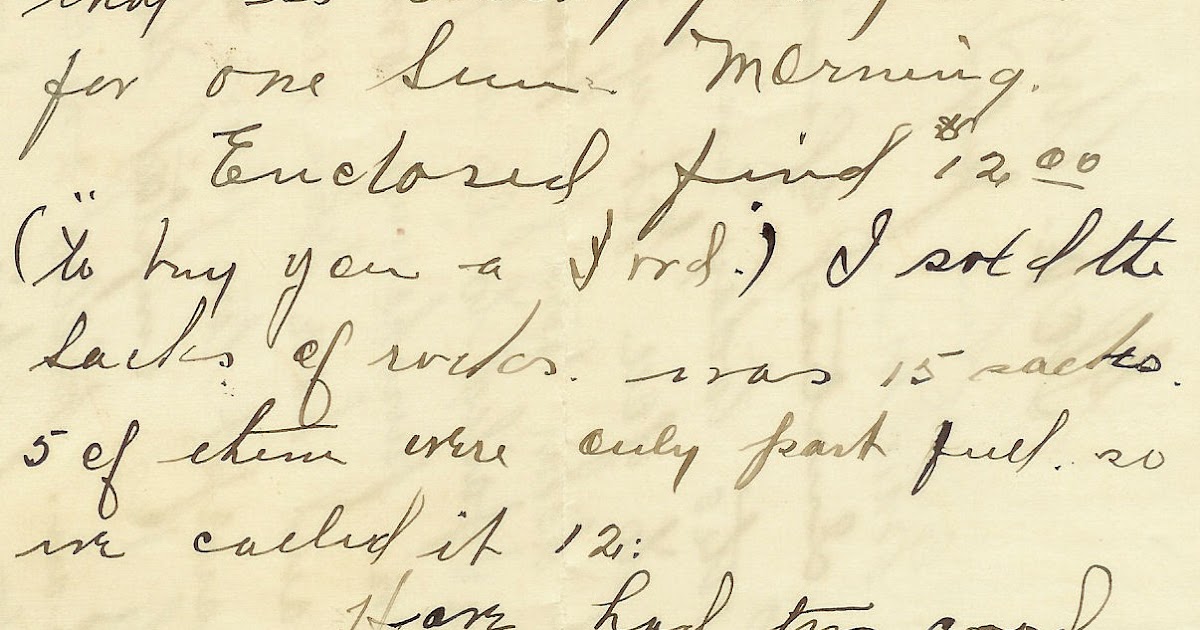 for one Sun. Morning.
Enclosed find $12.00
("to buy you a Ford.) I sold the
sacks of rocks. was 15 sacks.
5 of them were only part full. so
we called it 12:
Have had two good